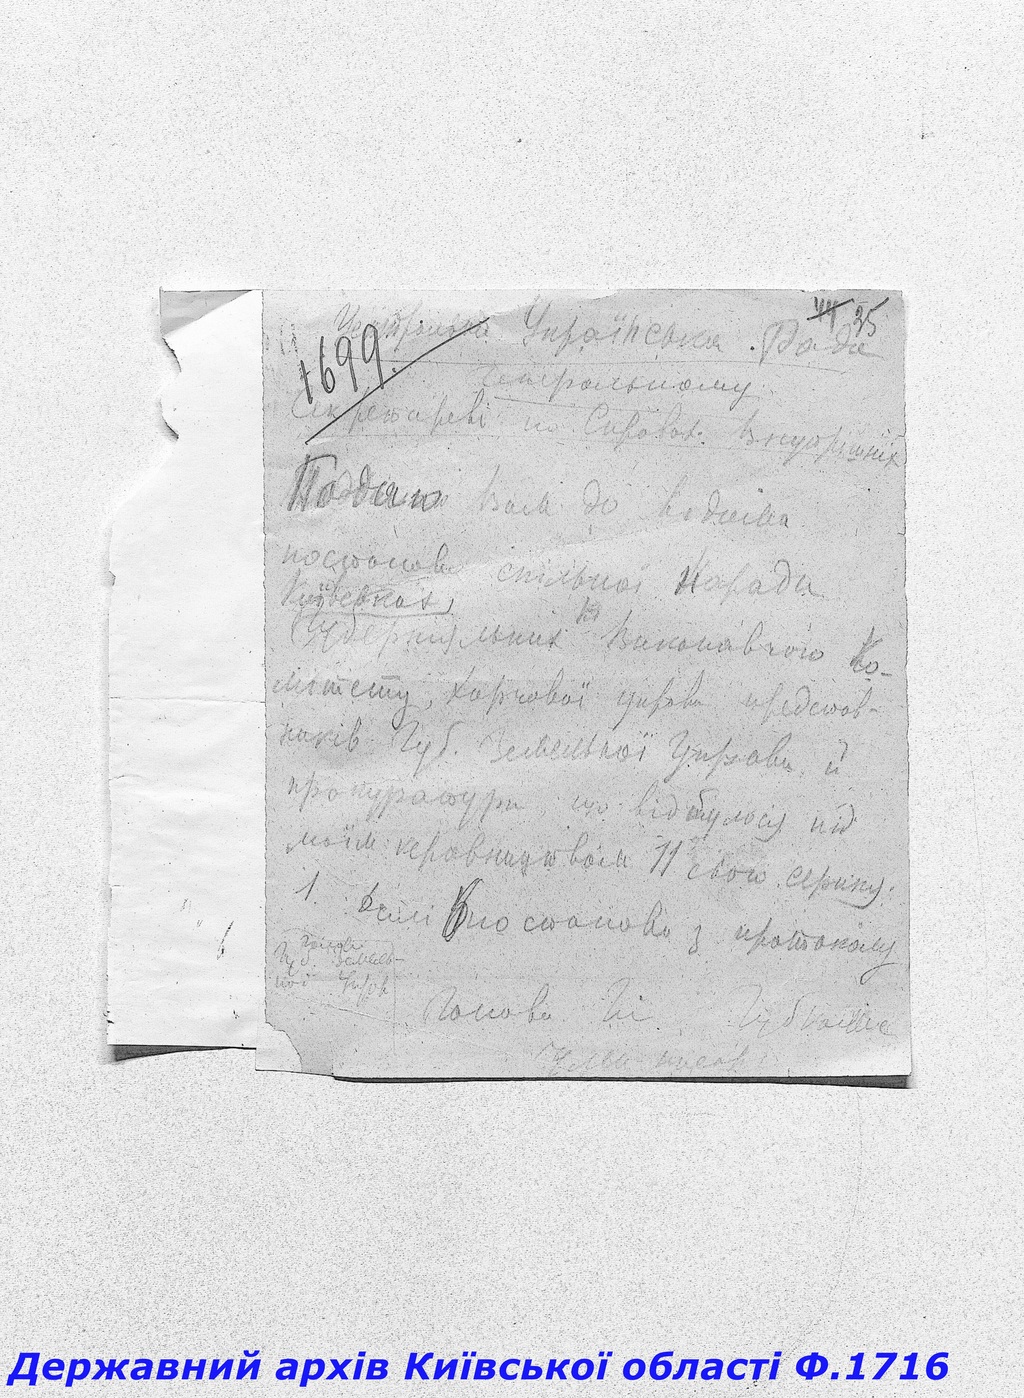 44 25
Центральна Українська Рада
1699.
Генеральному
Секретареві по Справах Внутрішніх
Подаю Вам до відома
постанови спільної Наради
Київських
Губерніяльних Виконавчого Ко-
мітету, Харчової управи представ-
ників Губ. Земельної Управи й
прокуратури що відбулося під
моїм керовництвом 11 свого серпня.
1. Постанови з протоколу
Голова
Губ. Земель-
ної Управ
Голова Губ
Державний архів Київської області Ф.1716